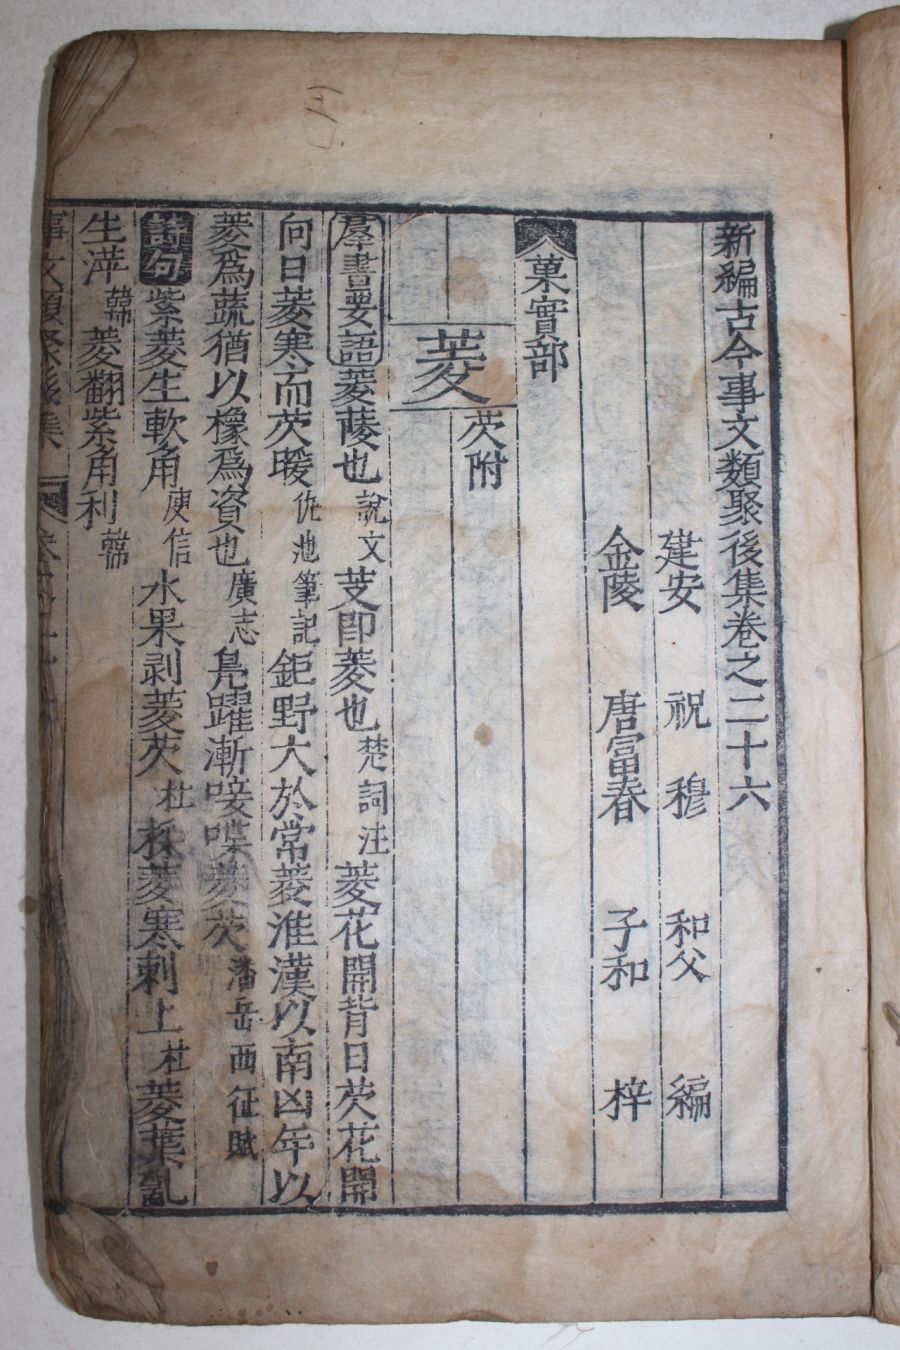 新編古今事文類聚後集卷之二十六
建安 祝穆 和父 編
金陵 唐富春 子和 梓
菓實部
芡附
菱
羣書要語菱蔆也說文芰即菱也楚詞注菱花開背日芡花開
向日菱寒而芡暖仇池筆記鉅野大於常菱淮漢以南凶年以
菱爲蔬猶以橡爲資也廣志鳧躍漸唼喋菱芡潘岳西征賦
詩句紫菱生軟角庾信水果剥菱芡杜採菱寒刺上杜菱葉亂
生萍韓菱翻紫角利韓
事文類聚後集